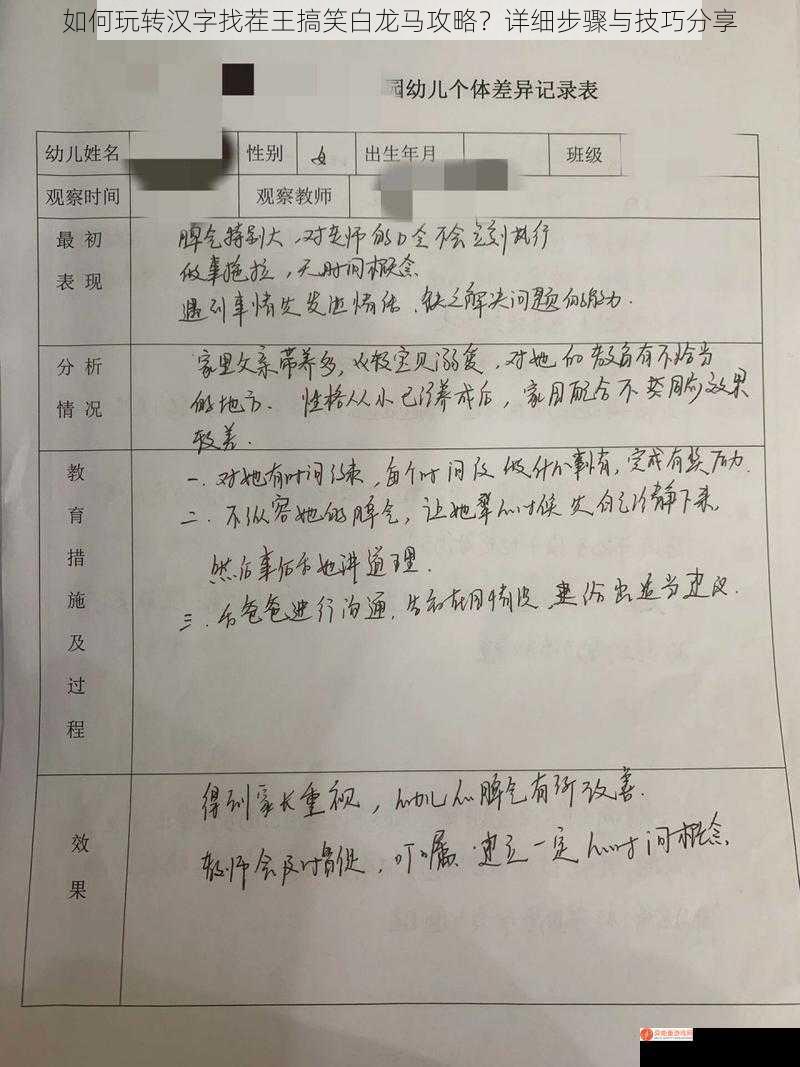 如何玩转汉字找茬王搞笑白龙马攻略？详细步骤与技巧分享
园幼儿个体差异记录表
幼儿姓名 性别 女 出生年月 班级
观察时间 观察教师
最初表现
脾气特别大，对老师的口令不会立刻执行
做事拖拉，无时间概念
遇到事情先发泄情绪，缺乏解决问题的能力.
分析情况
家里父亲带养多，从小宝贝溺爱，对她的教育有不恰当
的地方. 性格从小已经养成后，家园配合不 效果
较差.
教育措施及过程
一. 对她有时间约束，每个时间段做什么事情，完成有奖励.
二. 不纵容她的脾气，让她犟的时候先自己冷静下来，
然后事后和她讲道理.
三. 和爸爸进行沟通，告知在园情况，建 给出适当建议.
效果
得到家长重视，幼儿的脾气有所改善.
教师会及时督促，叮嘱. 建立一定的时间概念.